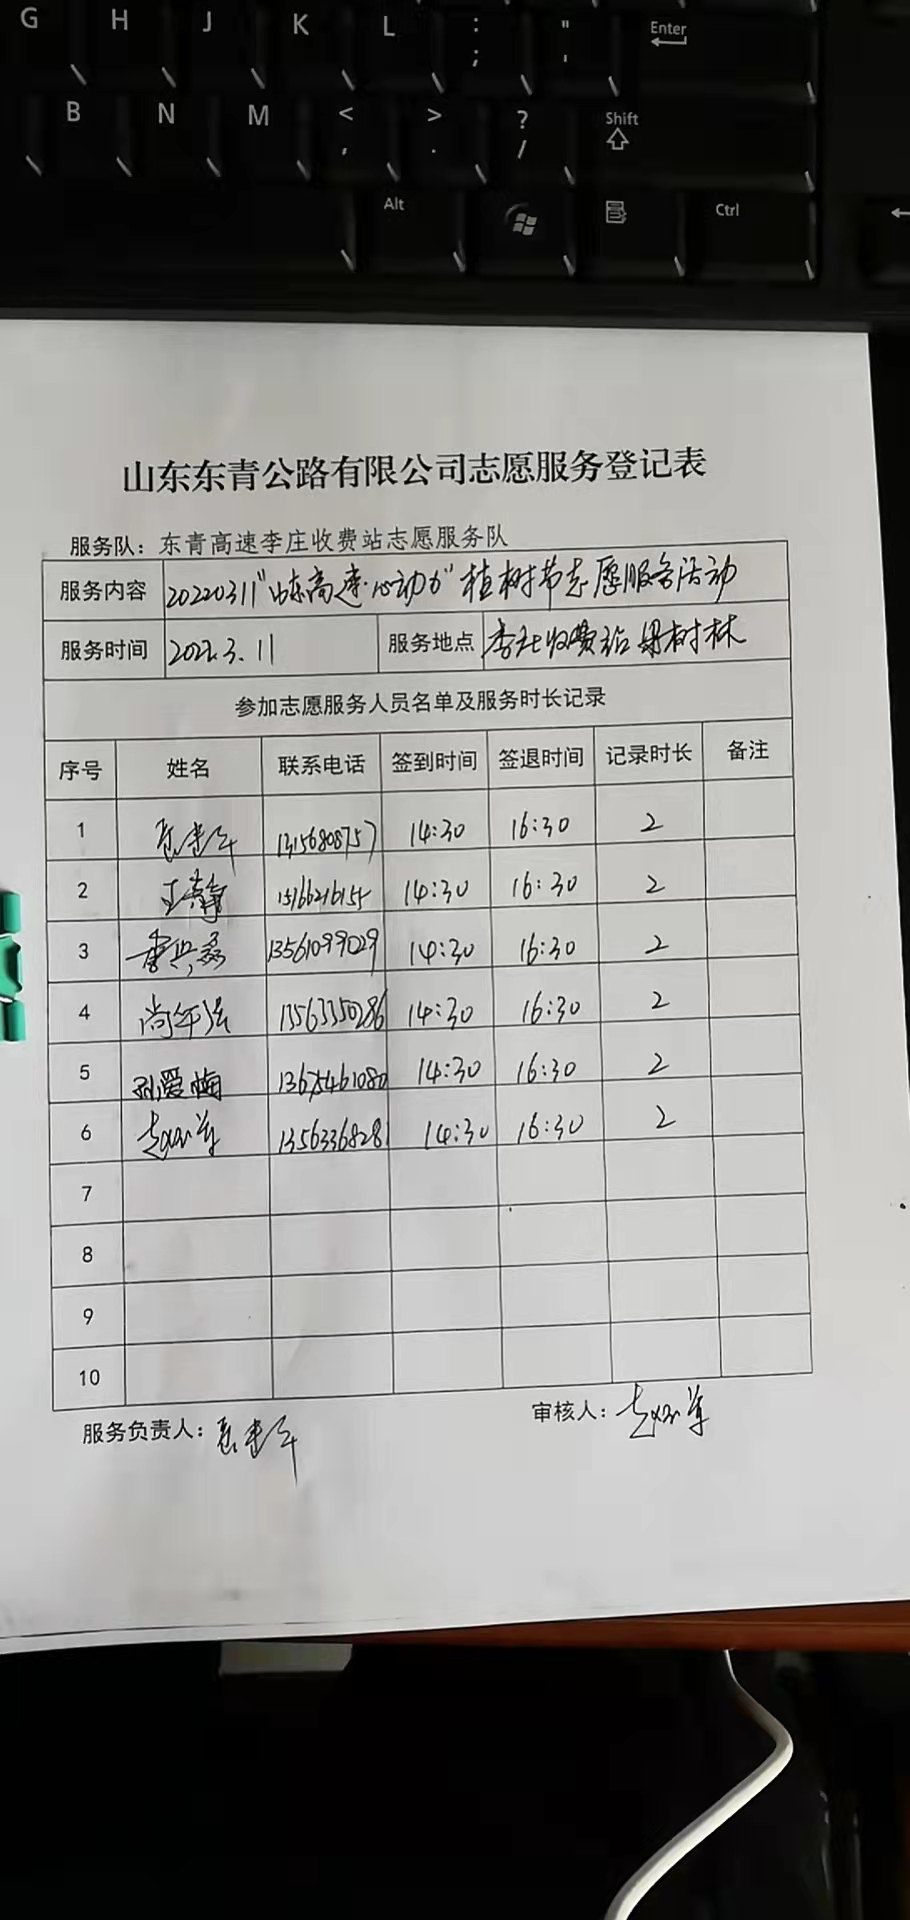 G H J K L : ; " ' Enter
B N M < , > . ? / Shift
Alt Ctrl
山东东青公路有限公司志愿服务登记表
服务队：东青高速李庄收费站志愿服务队
服务内容 20220311"山东高速·心动力"植树节志愿服务活动
服务时间 2022.3.11 服务地点 李庄收费站果树林
参加志愿服务人员名单及服务时长记录
序号 姓名 联系电话 签到时间 签退时间 记录时长 备注
1 14:30 16:30 2
2 王静 14:30 16:30 2
3 13561099529 14:30 16:30 2
4 13563350286 14:30 16:30 2
5 孙爱梅 13675461080 14:30 16:30 2
6 14:30 16:30 2
7
8
9
10
服务负责人： 审核人：